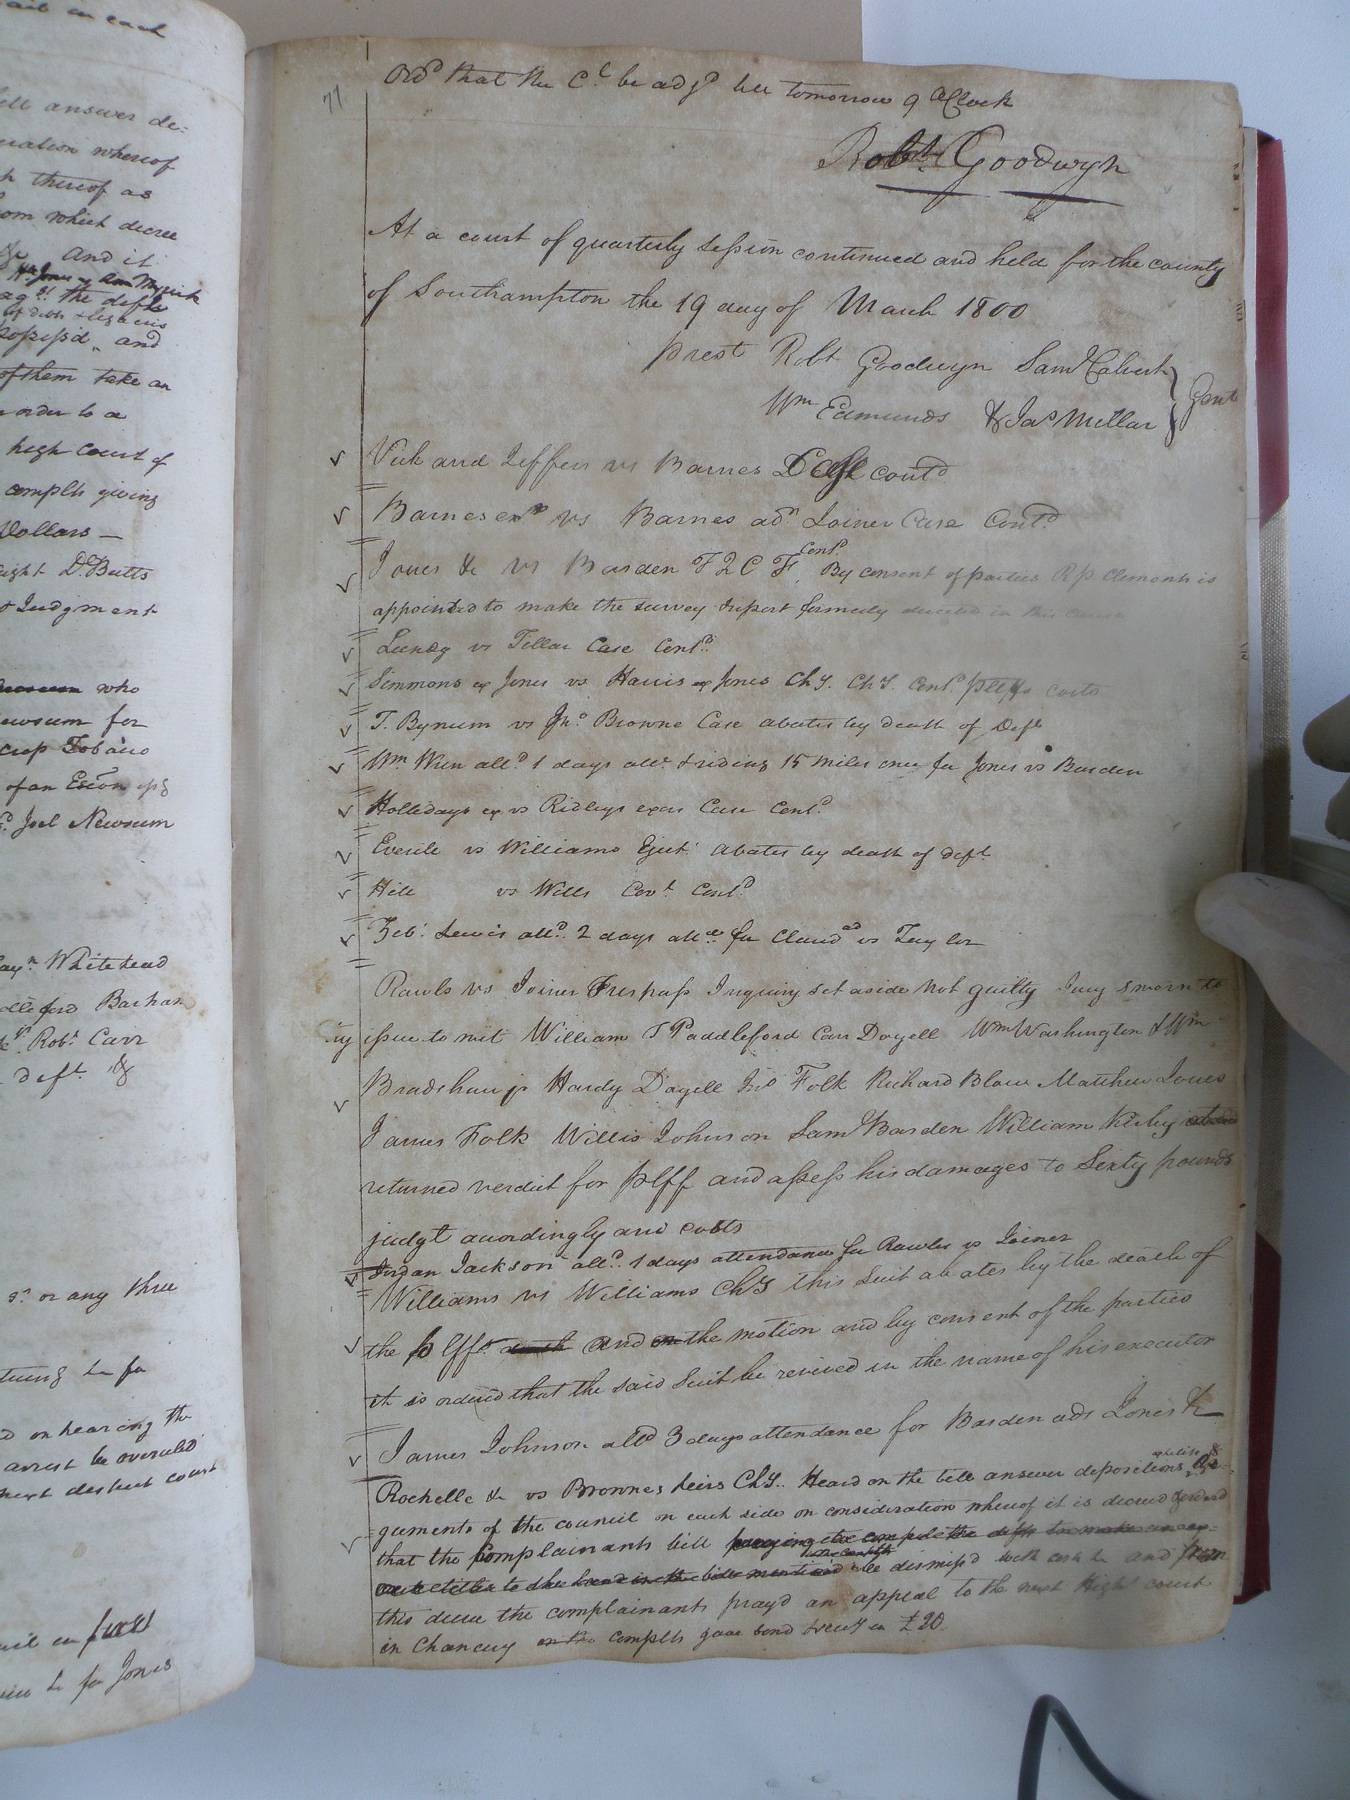 ail on each
ill answer de:
eration whereof
h thereof as
om which decree
&c and it
Wm Jones & Ann Myrick
agst the defts
of debts & legacies
possess'd, and
of them take an
order to a
high court of
compls giving
Dollars —
D. Butts
& Judgment
who
ewsum for
crop Tobacco
of an Exc͠on
Joel Newsum
Whitehead
dleford Barham
Robt Carr
deft. &
sr. or any three
fa
d on hearing the
arrest be overruled
next district court
ail on
fa Jones
77
Ordd that the Ct be adjd till tomorrow 9 OClock
Robt. Goodwyn
At a court of quarterly session continued and held for the county
of Southampton the 19 day of March 1800
prest Robt Goodwyn Saml Calvert
Wm Edmunds & Jas Millar } Gent
Vick and Jeffers vs Barnes Case contd
Barnes exr vs Barnes adr Joiner Case Contd
Jones &c vs Barden F & C F Contd. By consent of parties R P Clements is
appointed to make the survey & report formerly directed in this cause
Lundy vs Tellar Case Contd
Simmons ex Jones vs Harris ex Jones Chy. Ch Y. Contd pltffs costs
T. Bynum vs Jno. Browne Case abates by death of Deft
Wm Wren alld. 1 days attc. & riding 15 miles once for Jones vs Barden
Hollidays ex vs Ridleys exors Case Contd.
Everite vs Williams Eject. abates by death of deft
Hill vs Wills Covt. Contd.
Zeb. Lewis alld. 2 days attce for Claud ad vs Taylor
Rawls vs Joiner Trespass Inquiry set aside not guilty Jury sworn to
issue to wit William T Paddleford Carr Doyell Wm Washington & Wm
Bradshaw jr Hardy Doyell Jno Folk Richard Blow Matthew Jones
James Folk Willis Johnson Saml Barden William Kirby
returned verdict for plff and assess his damages to Sixty pounds
judgt accordingly and costs
Jordan Jackson alld. 1 days attendance for Rawls vs Joiner
Williams vs Williams ChY this suit abates by the death of
the plfft. death and on the motion and by consent of the parties
it is ordered that the said suit be revived in the name of his executor
James Johnson alld 3 days attendance for Barden ads Jones &c
Rochelle &c vs Brownes heirs ChY. Heard on the bill answer depositions, exhibits & Ar-
guments of the council on each side on consideration whereof it is decreed & ordered
that the Complainants bill praying to compel the defts to make
title to the land in the bill mentioned be dismiss'd with costs &c and from
this decree the complainants pray'd an appeal to the next High court
in Chancery complts gave bond & secy in £20.